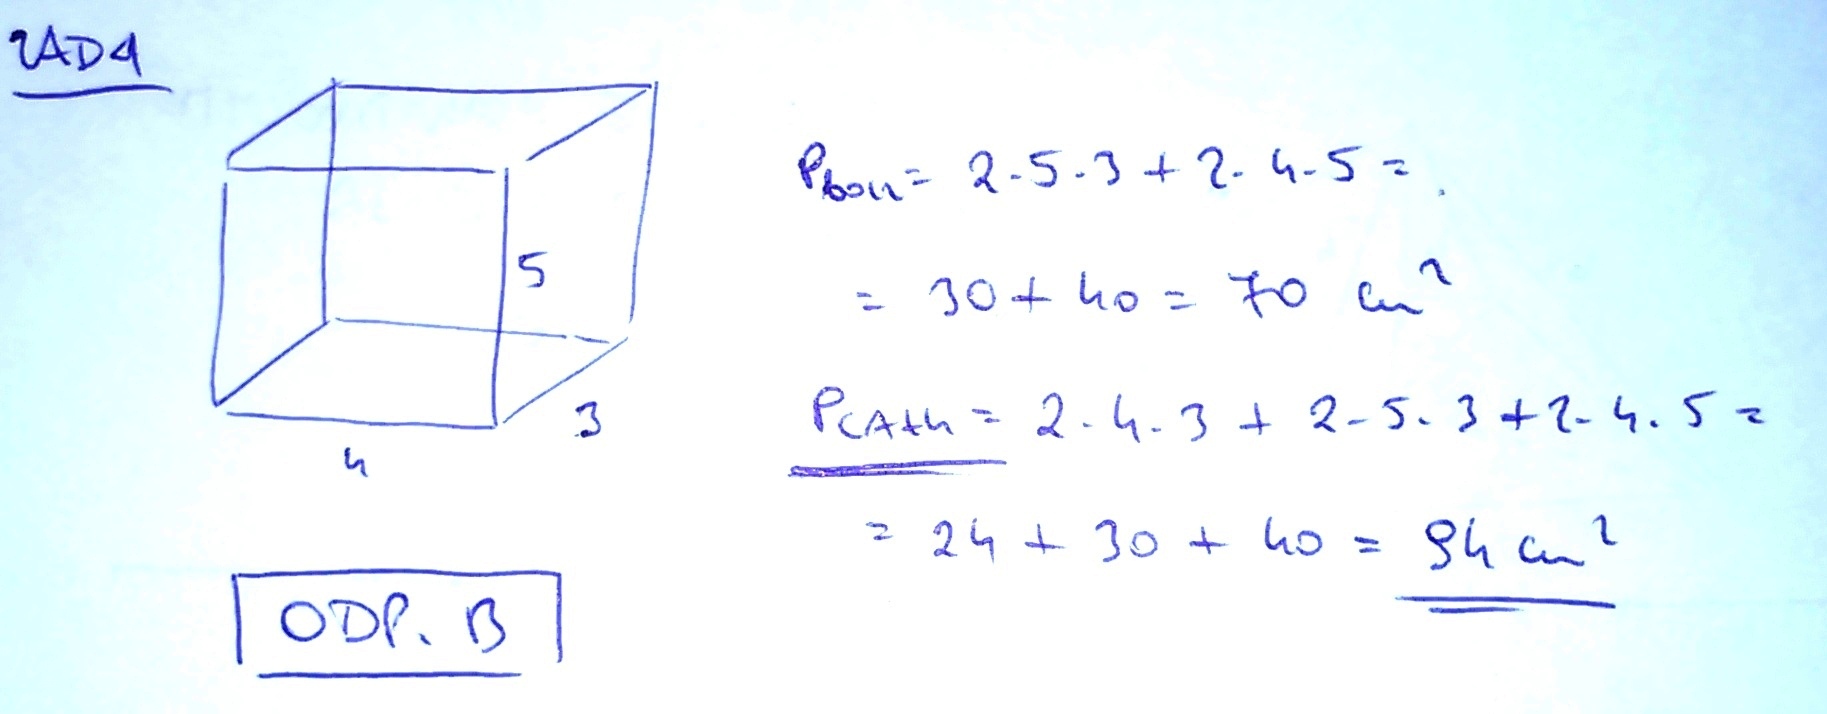 ZAD 4
5
3
4
Pbocz = 2·5·3 + 2·4·5 =
= 30 + 40 = 70 cm²
PCAŁK = 2·4·3 + 2·5·3 + 2·4·5 =
= 24 + 30 + 40 = 94 cm²
ODP. B